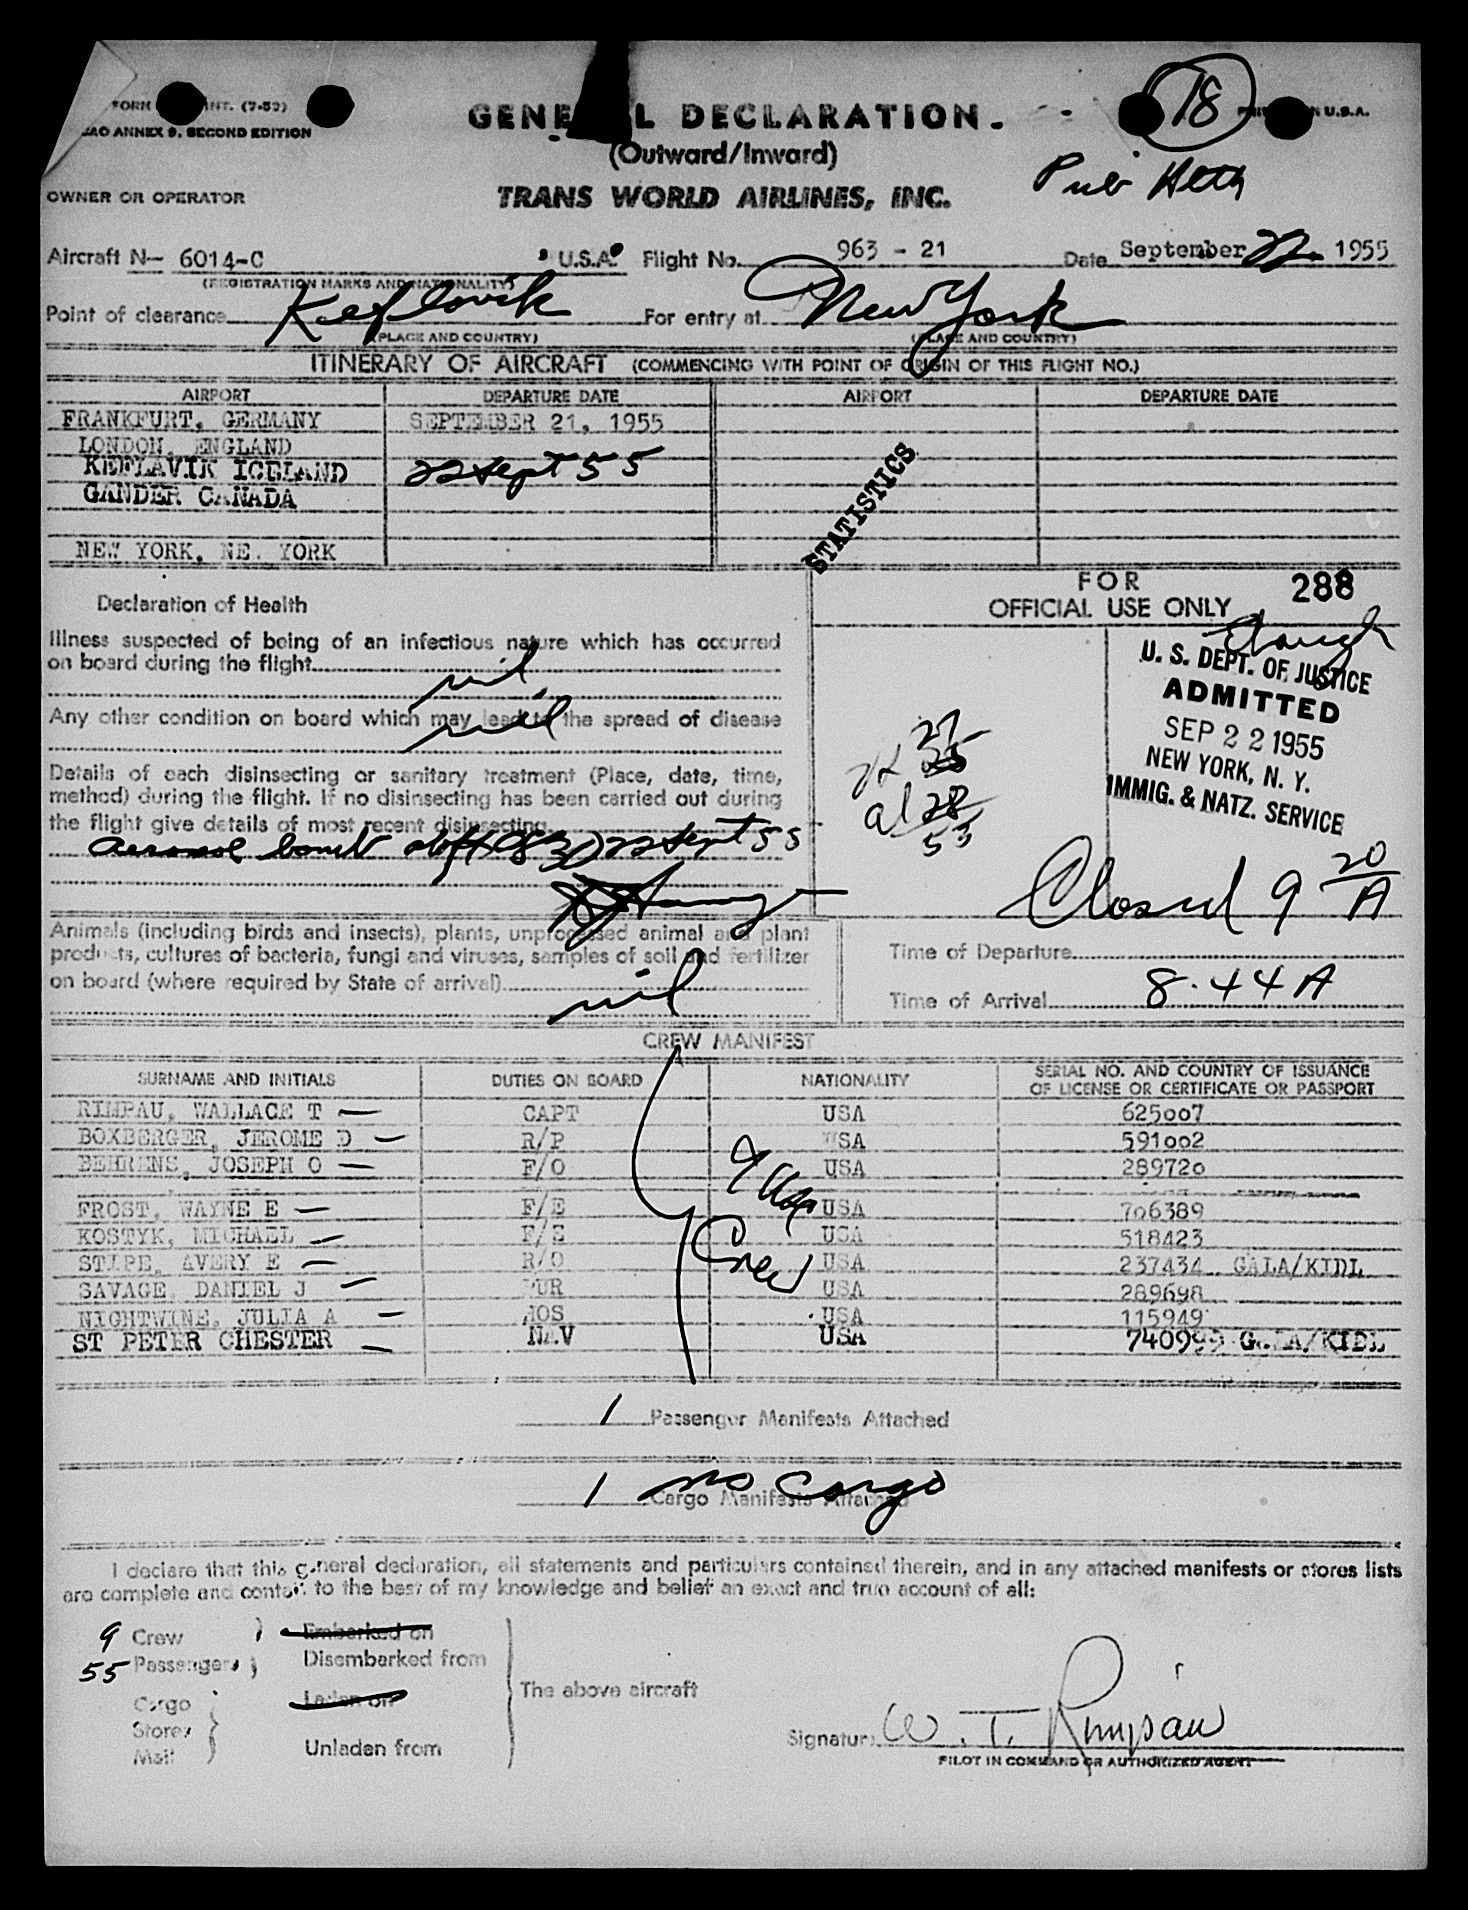 FORM INT. (7-52)
ICAO ANNEX 9, SECOND EDITION
GENERAL DECLARATION
18
U.S.A.
(Outward/Inward)
OWNER OR OPERATOR
TRANS WORLD AIRLINES, INC.
Pub Hlth
Aircraft N- 6014-C U.S.A. Flight No. 963 - 21 Date September 22 1955
(REGISTRATION MARKS AND NATIONALITY)
Point of clearance Keflavik For entry at New York
(PLACE AND COUNTRY) (PLACE AND COUNTRY)
ITINERARY OF AIRCRAFT (COMMENCING WITH POINT OF ORIGIN OF THIS FLIGHT NO.)
AIRPORT DEPARTURE DATE AIRPORT DEPARTURE DATE
FRANKFURT, GERMANY SEPTEMBER 21, 1955
LONDON, ENGLAND
KEFLAVIK ICELAND 22 Sept 55
GANDER CANADA
STATISTICS
NEW YORK, NEW YORK
FOR
OFFICIAL USE ONLY
288
Declaration of Health
Illness suspected of being of an infectious nature which has occurred
on board during the flight nil
Any other condition on board which may lead to the spread of disease
nil
Details of each disinsecting or sanitary treatment (Place, date, time,
method) during the flight. If no disinsecting has been carried out during
the flight give details of most recent disinsecting
aerosol bomb 22 Sept 55
U. S. DEPT. OF JUSTICE
ADMITTED
SEP 22 1955
NEW YORK, N. Y.
IMMIG. & NATZ. SERVICE
28
53
Closed 9 20 A
Animals (including birds and insects), plants, unprocessed animal and plant
products, cultures of bacteria, fungi and viruses, samples of soil and fertilizer
on board (where required by State of arrival) nil
Time of Departure
Time of Arrival 8.44 A
CREW MANIFEST
SURNAME AND INITIALS DUTIES ON BOARD NATIONALITY SERIAL NO. AND COUNTRY OF ISSUANCE OF LICENSE OR CERTIFICATE OR PASSPORT
RIMPAU, WALLACE T CAPT USA 625007
BOXBERGER, JEROME D R/P USA 591002
BEHRENS, JOSEPH O F/O USA 289720
FROST, WAYNE E F/E USA 706389
KOSTYK, MICHAEL F/E USA 518423
STIPE, AVERY E R/O USA 237434 GALA/KIDL
SAVAGE, DANIEL J PUR USA 289698
NIGHTWINE, JULIA A HOS USA 115949
ST PETER CHESTER NAV USA 740995 GALA/KIDL
9 USA
Crew
1 Passenger Manifests Attached
1 no Cargo
Cargo Manifests Attached
I declare that this general declaration, all statements and particulars contained therein, and in any attached manifests or stores lists
are complete and contain to the best of my knowledge and belief an exact and true account of all:
9 Crew Embarked on
55 Passengers Disembarked from
Cargo Laden on The above aircraft
Stores
Mail Unladen from
Signature W. T. Rimpau
PILOT IN COMMAND OR AUTHORIZED AGENT